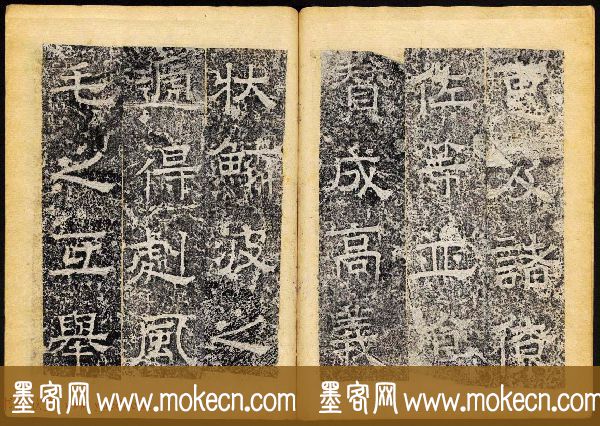 及諸僚
佐等並
成高義
状鱗波之
得風
毛之互舉
墨客网 www.mokecn.com
墨客网 www.mokecn.com